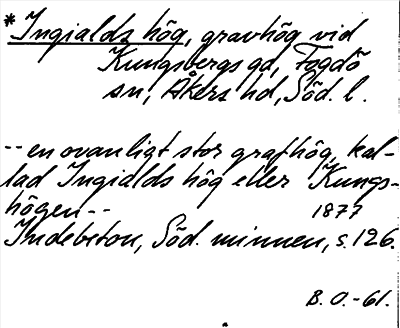 *Ingialds hög, gravhög vid
Kungsbergs gd, Fogdö
sn, Åkers hd, Söd. l.
-- en ovanligt stor grafhög, kal-
lad Ingialds hög eller Kungs-
högen -- 1877
Indebetou, Söd. minnen, s. 126.
B. O. -61.